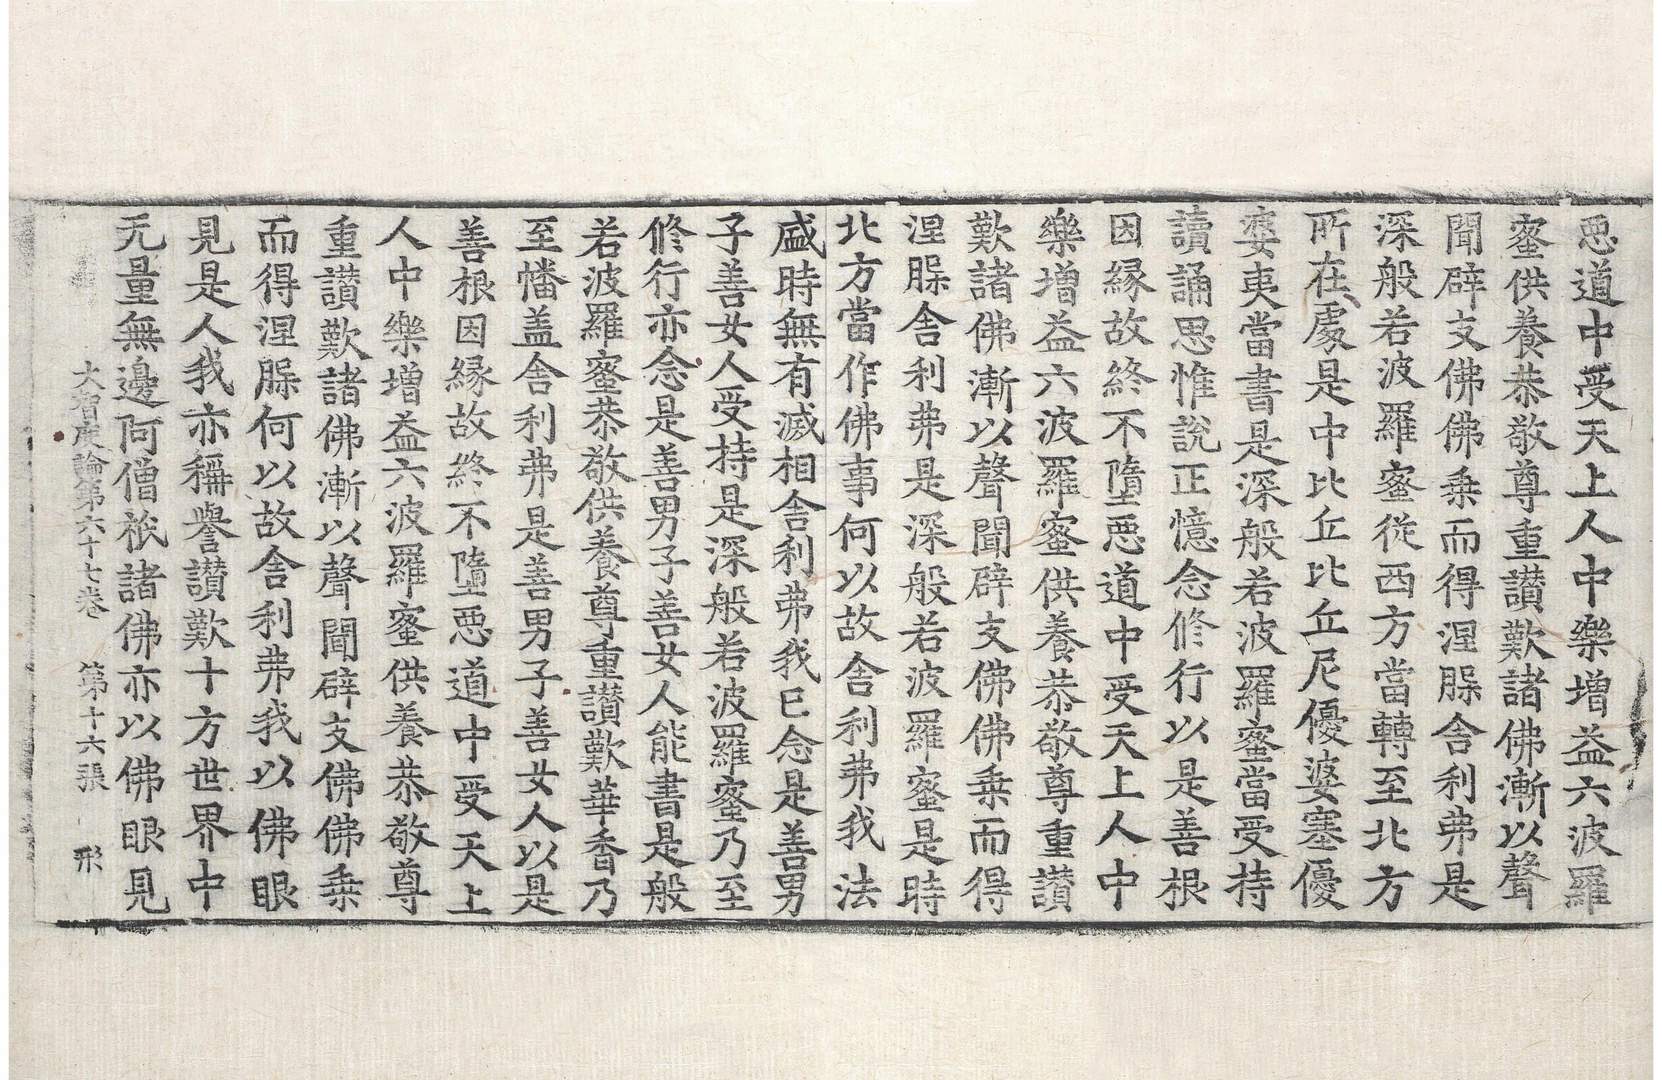 惡道中受天上人中樂增益六波羅
蜜供養恭敬尊重讃歎諸佛漸以聲
聞辟支佛佛乗而得涅槃舎利弗是
深般若波羅蜜從西方當轉至北方
所在處是中比丘比丘尼優婆塞優
婆夷當書是深般若波羅蜜當受持
讀誦思惟說正憶念修行以是善根
因縁故終不墮惡道中受天上人中
樂增益六波羅蜜供養恭敬尊重讃
歎諸佛漸以聲聞辟支佛佛乗而得
涅槃舎利弗是深般若波羅蜜是時
北方當作佛事何以故舎利弗我法
盛時無有滅相舎利弗我已念是善男
子善女人受持是深般若波羅蜜乃至
修行亦念是善男子善女人能書是般
若波羅蜜恭敬供養尊重讃歎華香乃
至幡盖舎利弗是善男子善女人以是
善根因縁故終不墮惡道中受天上
人中樂增益六波羅蜜供養恭敬尊
重讃歎諸佛漸以聲聞辟支佛佛乗
而得涅槃何以故舎利弗我以佛眼
見是人我亦稱譽讃歎十方世界中
无量無邊阿僧祇諸佛亦以佛眼見
大智度論第六十七卷 第十六張 形